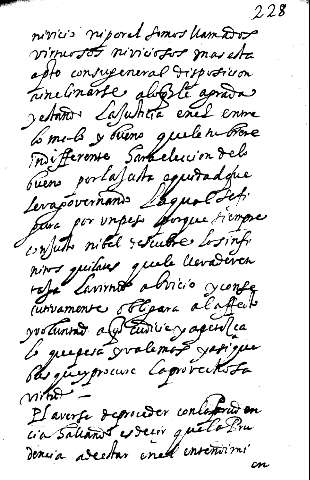 228
ni vicio ni por el somos llamados
virtuosos ni viciosos mas esta
apto con su general disposicion
a inclinarse a lo q le agrada
y estando la Justicia en el entre
lo malo y bueno que le hubiere
indifferente hara eleccion de lo
bueno por la Justa equidad que
le va governando la qual se fi
gura por un peso porque siempre
con Justo nibel descubre los infi
nitos quilates que le lleva de ven
taja la virtud al vicio y conse
cutivamente obligara al affecto
y voluntad a q cudicie y apetesca
lo que pesa y vale mas y asi que
busque y procure la provechosa
virtud —
El aver se de proceder con la Pruden
cia hablando es decir que la Pru
dencia a de estar en el entendimi
en